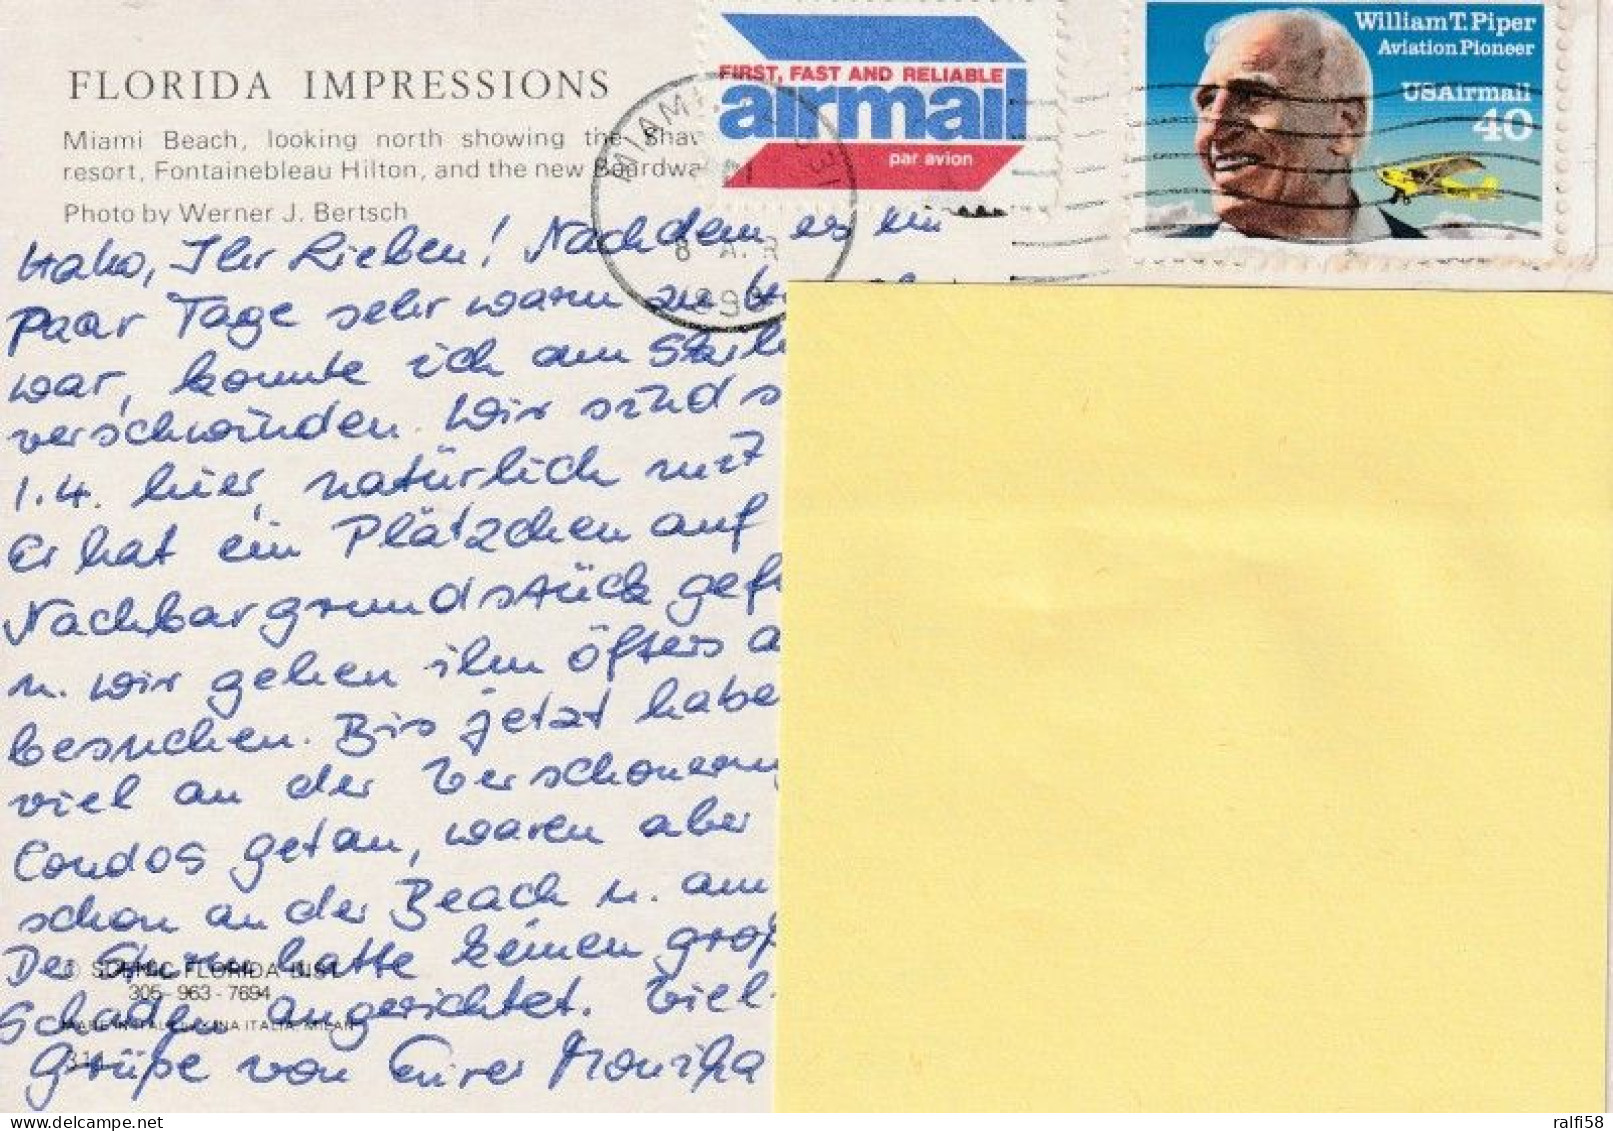 FLORIDA IMPRESSIONS
Miami Beach, looking north showing the
resort, Fontainebleau Hilton, and the new Boardwa
Photo by Werner J. Bertsch
FIRST, FAST AND RELIABLE
airmail
par avion
William T. Piper
Aviation Pioneer
USAirmail
40
MIAMI
8 APR
Hallo, Ihr Lieben! Nachdem es ein
paar Tage sehr warm zu
war, konnte ich am
verschwinden. Wir sind s
1.4. hier, natürlich mit
Er hat ein Plätzchen auf
Nachbargrundstück gef
u. wir gehen ihn öfters a
besuchen. Bis jetzt habe
viel an der Verschönerung
Condos getan, waren aber
schon an der Beach u. am
Der Sturm hatte keinen groß
Schaden angerichtet. Viel
Grüße von Eurer Monika
© SCENIC FLORIDA DIST.
305-963-7694
MADE IN ITALY LAKINA ITALIA, MILAN
ralfi58